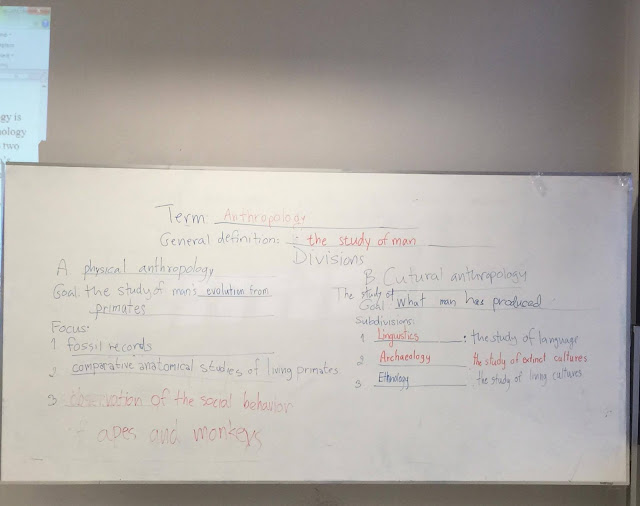 gy is
ology
two
Term Anthropology
General definition: : the study of man
Divisions
A physical anthropology
Goal: the study of man's evolution from
primates
Focus:
1 fossil records
2 comparative anatomical studies of living primates
3 observation of the social behavior
of apes and monkeys
B. Cutural anthropology
The study of
Goal what man has produced
Subdivisions:
1 Linguistics : the study of language
2 Archaeology : the study of extinct cultures
3 Ethnology : the study of living cultures